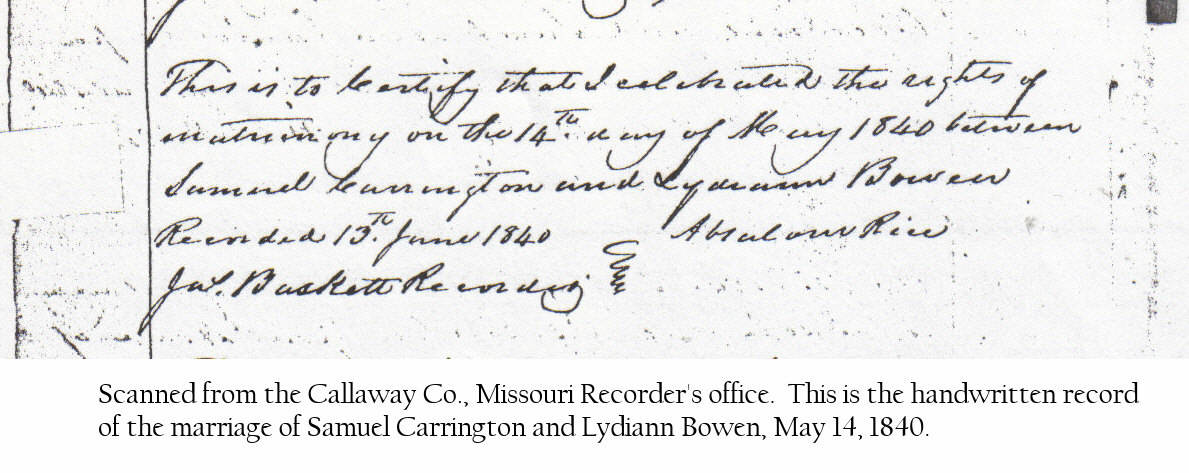 This is to Certify that I celebrated the rights of
matrimony on the 14th. day of May 1840 between
Samuel Carrington and Lydiann Bowen
Recorded 13th. June 1840 Absalom Rice
Jas. Baskett Recording
Scanned from the Callaway Co., Missouri Recorder's office. This is the handwritten record
of the marriage of Samuel Carrington and Lydiann Bowen, May 14, 1840.